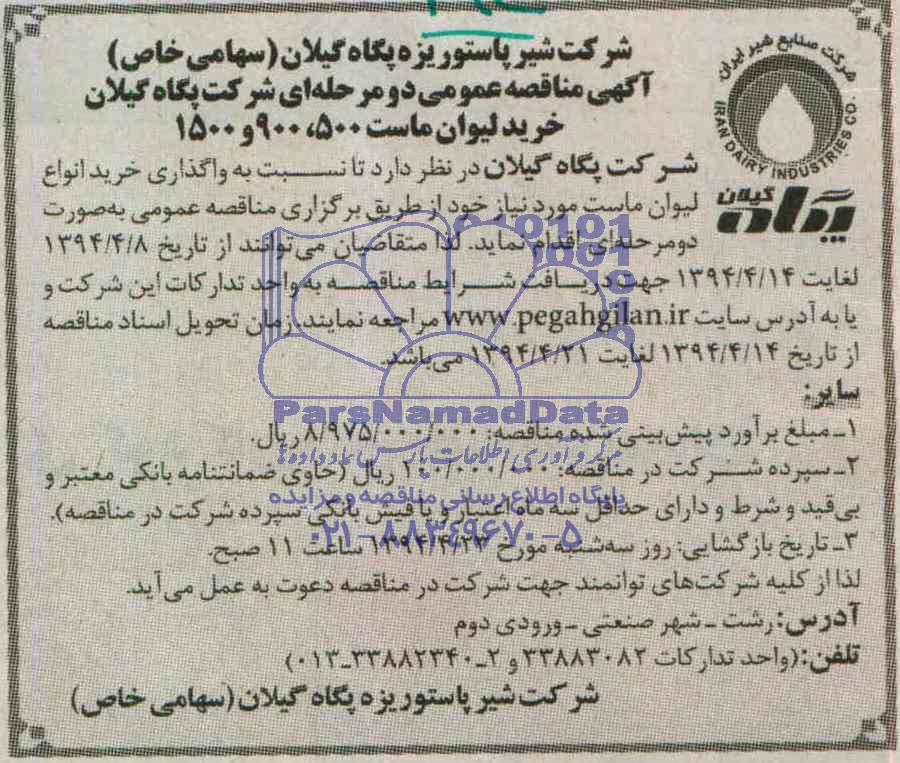 شرکت شیر پاستوریزه پگاه گیلان (سهامی خاص)
آگهی مناقصه عمومی دو مرحله‌ای شرکت پگاه گیلان
خرید لیوان ماست ۵۰۰، ۹۰۰ و ۱۵۰۰
شرکت صنایع شیر ایران
IRAN DAIRY INDUSTRIES CO.
پگاه گیلان
شرکت پگاه گیلان در نظر دارد تا نسبت به واگذاری خرید انواع
لیوان ماست مورد نیاز خود از طریق برگزاری مناقصه عمومی به‌صورت
دومرحله‌ای اقدام نماید. لذا متقاضیان می‌توانند از تاریخ ۱۳۹۴/۴/۸
لغایت ۱۳۹۴/۴/۱۴ جهت دریافت شرایط مناقصه به واحد تدارکات این شرکت و
یا به آدرس سایت www.pegahgilan.ir مراجعه نمایند. زمان تحویل اسناد مناقصه
از تاریخ ۱۳۹۴/۴/۱۴ لغایت ۱۳۹۴/۴/۲۱ می‌باشد.
سایر:
۱ـ مبلغ برآورد پیش‌بینی شده مناقصه: ۸/۹۷۵/۰۰۰/۰۰۰ ریال.
۲ـ سپرده شرکت در مناقصه: ۱۰۰/۰۰۰/۰۰۰ ریال (حاوی ضمانتنامه بانکی معتبر و
بی‌قید و شرط و دارای حداقل سه ماه اعتبار و یا فیش بانکی سپرده شرکت در مناقصه).
۳ـ تاریخ بازگشایی: روز سه‌شنبه مورخ ۱۳۹۴/۴/۲۳ ساعت ۱۱ صبح.
لذا از کلیه شرکت‌های توانمند جهت شرکت در مناقصه دعوت به عمل می‌آید.
آدرس: رشت ـ شهر صنعتی ـ ورودی دوم
تلفن: (واحد تدارکات ۳۳۸۸۳۰۸۲ و ۲ـ۳۳۸۸۲۳۴۰ـ۰۱۳)
شرکت شیر پاستوریزه پگاه گیلان (سهامی خاص)
ParsNamadData
پایگاه اطلاع رسانی مناقصه و مزایده
۰۲۱-۸۸۳۴۹۶۷۰-۵